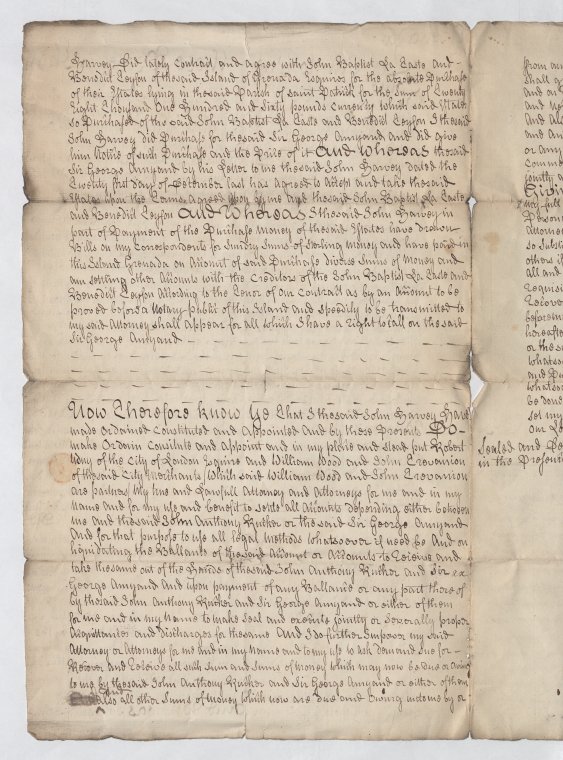 Harvey Did lately Contract and agree with John Baptist La Taste and
Benedict Teyson of the said Island of Grenada Esquires for the absolute Purchase
of their Estates lying in the said Parish of Saint Patrick for the Sum of Twenty
Eight Thousand One Hundred and Sixty pounds Currency which said Estates
so Purchased of the said John Baptist La Taste and Benedict Teyson I the said
John Harvey did Purchase for the said Sir George Amyand and did give
him Notice of such Purchase and the Price of it And Whereas the said
Sir George Amyand by his Letter to me the said John Harvey dated the
Twenty first day of December last has Agreed to Accept and take the said
Estates upon the Terms Agreed upon by me And the said John Baptist La Taste
and Benedict Teyson And Whereas I the said John Harvey in
part of Payment of the Purchase Money of the said Estates have Drawn
Bills on my Correspondents for Sundry Sums of Sterling Money and have paid in
this Island Grenada on Account of said Purchase divers Sums of Money and
am settling other Accounts with the Creditors of the John Baptist La Taste and
Benedict Teyson According to the Tenor of our Contract as by an Account to be
proved before a Notary public of this Island and Speedily to be transmitted to
my said Attorney shall Appear for all which I have a right to call on the said
Sir George Amyand
Now Therefore Know Ye That I the said John Harvey Have
made Ordained Constituted and Appointed And by these Presents Do
make Ordain Constitute and Appoint and in my place and Stead put Robert
Udny of the City of London Esquire and William Wood and John Trevanion
of the said City Merchants (Which said William Wood and John Trevanion
are partners) My true and Lawfull Attorney and Attorneys for me and in my
Name and for my use and benefit to settle all Accounts depending either between
me and the said John Anthony Rucker or the said Sir George Amyand
And for that purpose to use all Legal methods whatsoever if need be And on
liquidating the Ballance of the said Account or Accounts to Receive and
take the same out of the Hands of the said John Anthony Rucker and Sir
George Amyand And upon payment of any Ballance or any part thereof
by the said John Anthony Rucker and Sir George Amyand or either of them
for me and in my Name to make Seal and execute jointly or Severally proper
Acquittances and Discharges for the same And I do further Impower my said
Attorney or Attorneys for me and in my Name and to my use to Ask Demand Sue for
Recover and Receive all such Sum and Sums of Money which may now be Due or Owing
to me by the said John Anthony Rucker and Sir George Amyand or either of them
also all other Sums of Money which now are Due and Owing unto me by or
from
shall
and
And
or any
Comm
jointly
Givin
full
Person
Attorney
so Subst
others
all and
requisi
Recover
hereafter
or the
whatso
and
whatso
be done
set my
our Lo
Sealed and De
in the Presen